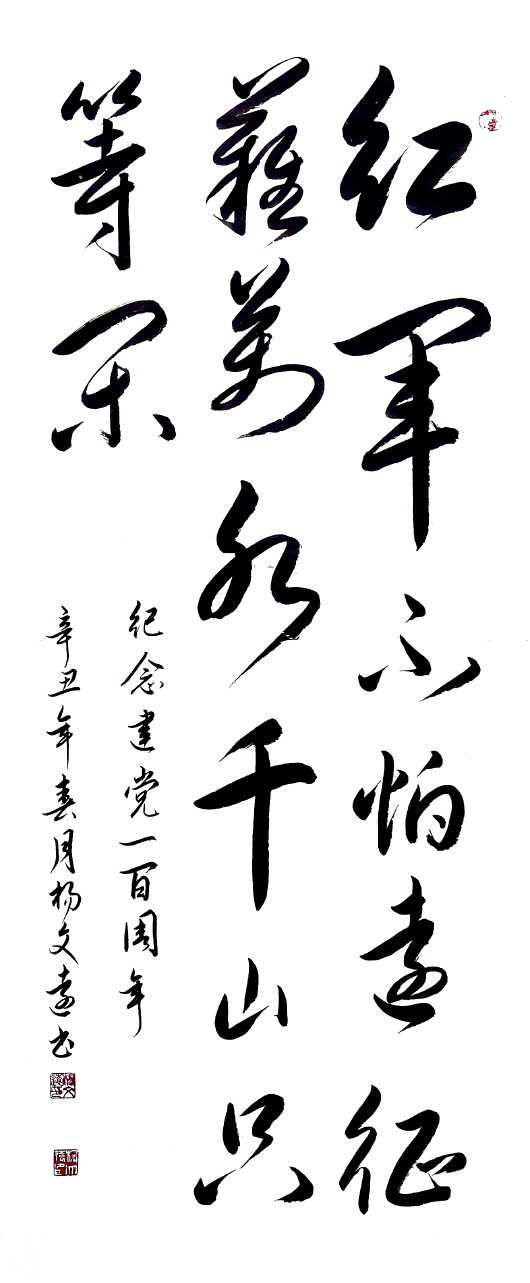 红军不怕远征
難萬水千山只
等闲
纪念建党一百周年
辛丑年春月杨文远书